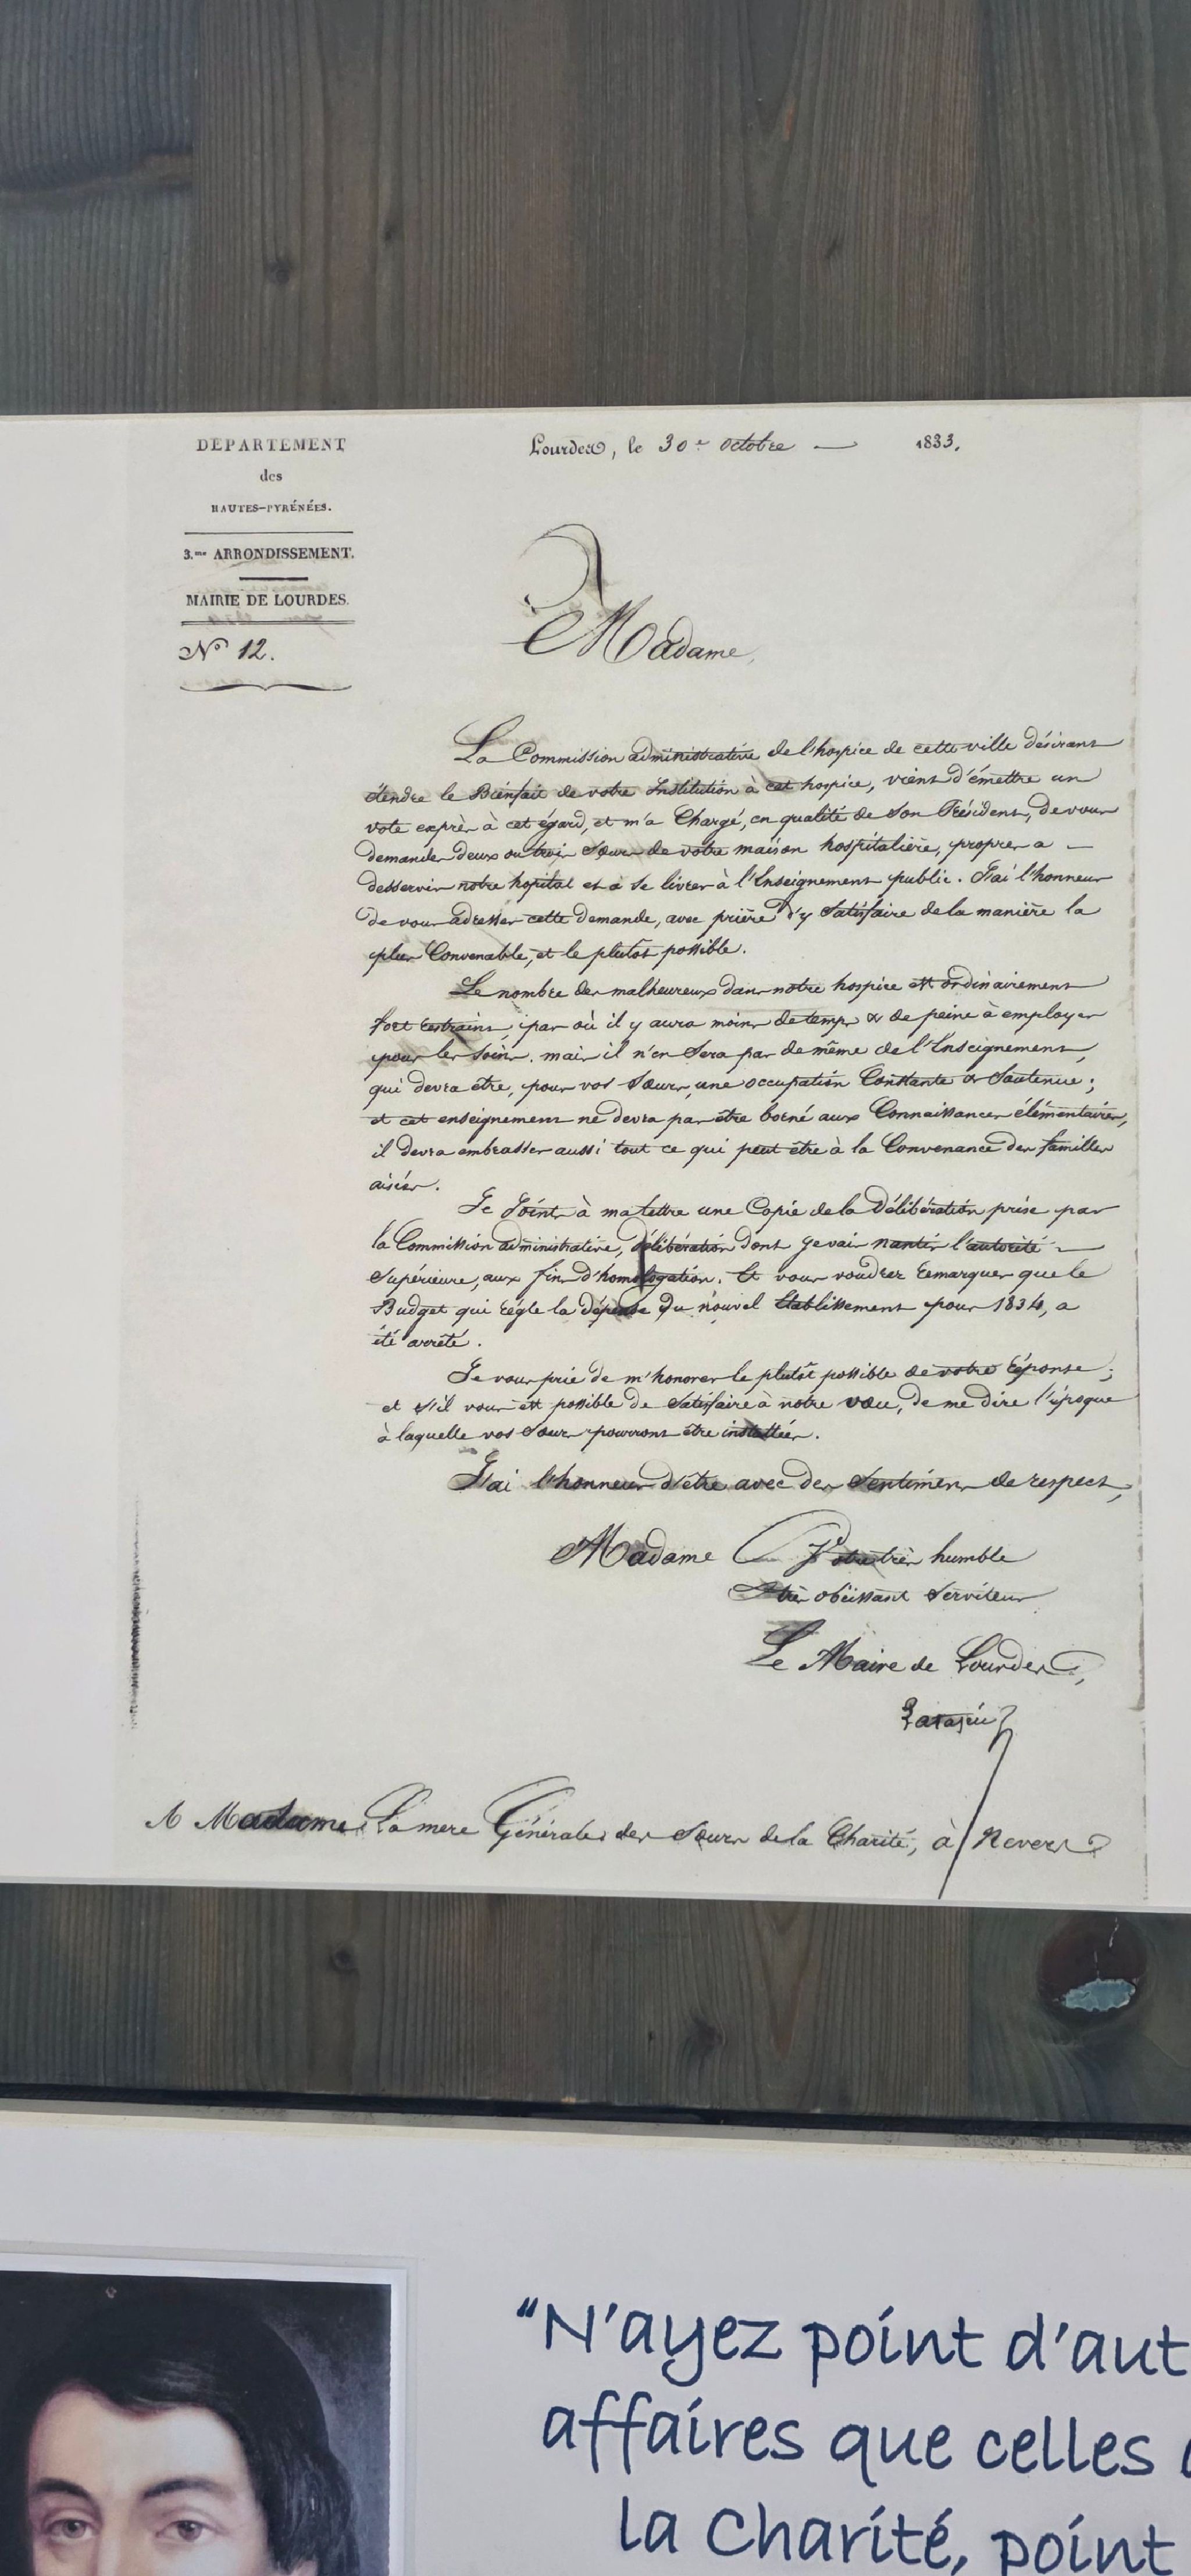 DÉPARTEMENT
des
HAUTES-PYRÉNÉES.
3.me ARRONDISSEMENT.
MAIRIE DE LOURDES.
N° 12.
Lourdes, le 30e Octobre 1833.
Madame,
La Commission administrative de l'hospice de cette ville désirant
étendre le Bienfait de votre Institution à cet hospice, vient d'émettre un
vote exprès à cet égard, et m'a Chargé, en qualité de Son Président, de vous
demander deux ou trois Sœurs de votre maison hospitalière, propres a
desservir notre hopital et à se livrer à l'Enseignement public. J'ai l'honneur
de vous adresser cette demande, avec prière d'y Satisfaire de la manière la
plus Convenable, et le plutôt possible.
Le nombre des malheureux dans notre hospice est ordinairement
fort restraint, par où il y aura moins de temps & de peine à employer
pour les soins. mais il n'en Sera pas de même de l'Enseignement,
qui devra être, pour vos Sœurs, une occupation Constante & Soutenue;
et cet enseignement ne devra pas être borné aux Connaissances élémentaires,
il devra embrasser aussi tout ce qui peut être à la Convenance des familles
aisées.
Je Joints à ma lettre une Copie de la Délibération prise par
la Commission administrative, délibération dont je vais nantir l'autorité
Supérieure, aux fins d'homologation. Et vous voudrez remarquer que le
Budget qui règle la dépense du nouvel Etablissement pour 1834, a
été arrêté.
Je vous prie de m'honorer le plutôt possible de votre réponse;
et s'il vous est possible de Satisfaire à notre vœu, de me dire l'époque
à laquelle vos Sœurs pourront être installées.
J'ai l'honneur d'être avec des Sentimens de respect,
Madame Votre très humble
& très obéissant Serviteur
Le Maire de Lourdes,
A Madame La mere Générale des Sœurs de la Charité, à Nevers
"N'ayez point d'aut
affaires que celles
la Charité, point